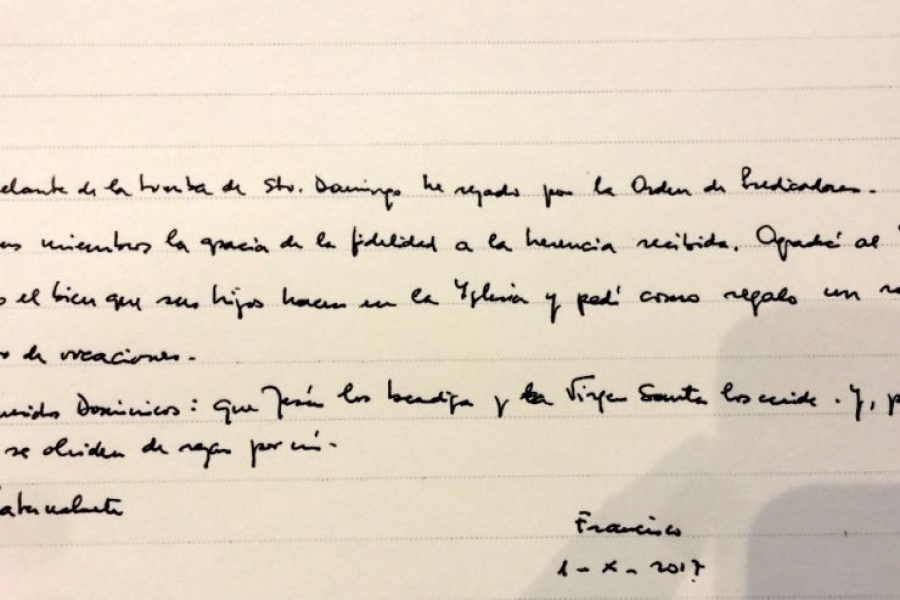 elante de la tumba de Sto. Domingo he rezado por la Orden de Predicadores.
us miembros la gracia de la fidelidad a la herencia recibida. Agradecí al
s el bien que sus hijos hacen en la Yglesia y pedí como regalo un
o de vocaciones.
ueridos Dominicos: que Jesús los bendiga y la Virgen Santa los cuide. Y, p
se olviden de rezar por mí.
aternalmente
Francisco
1-X-2017